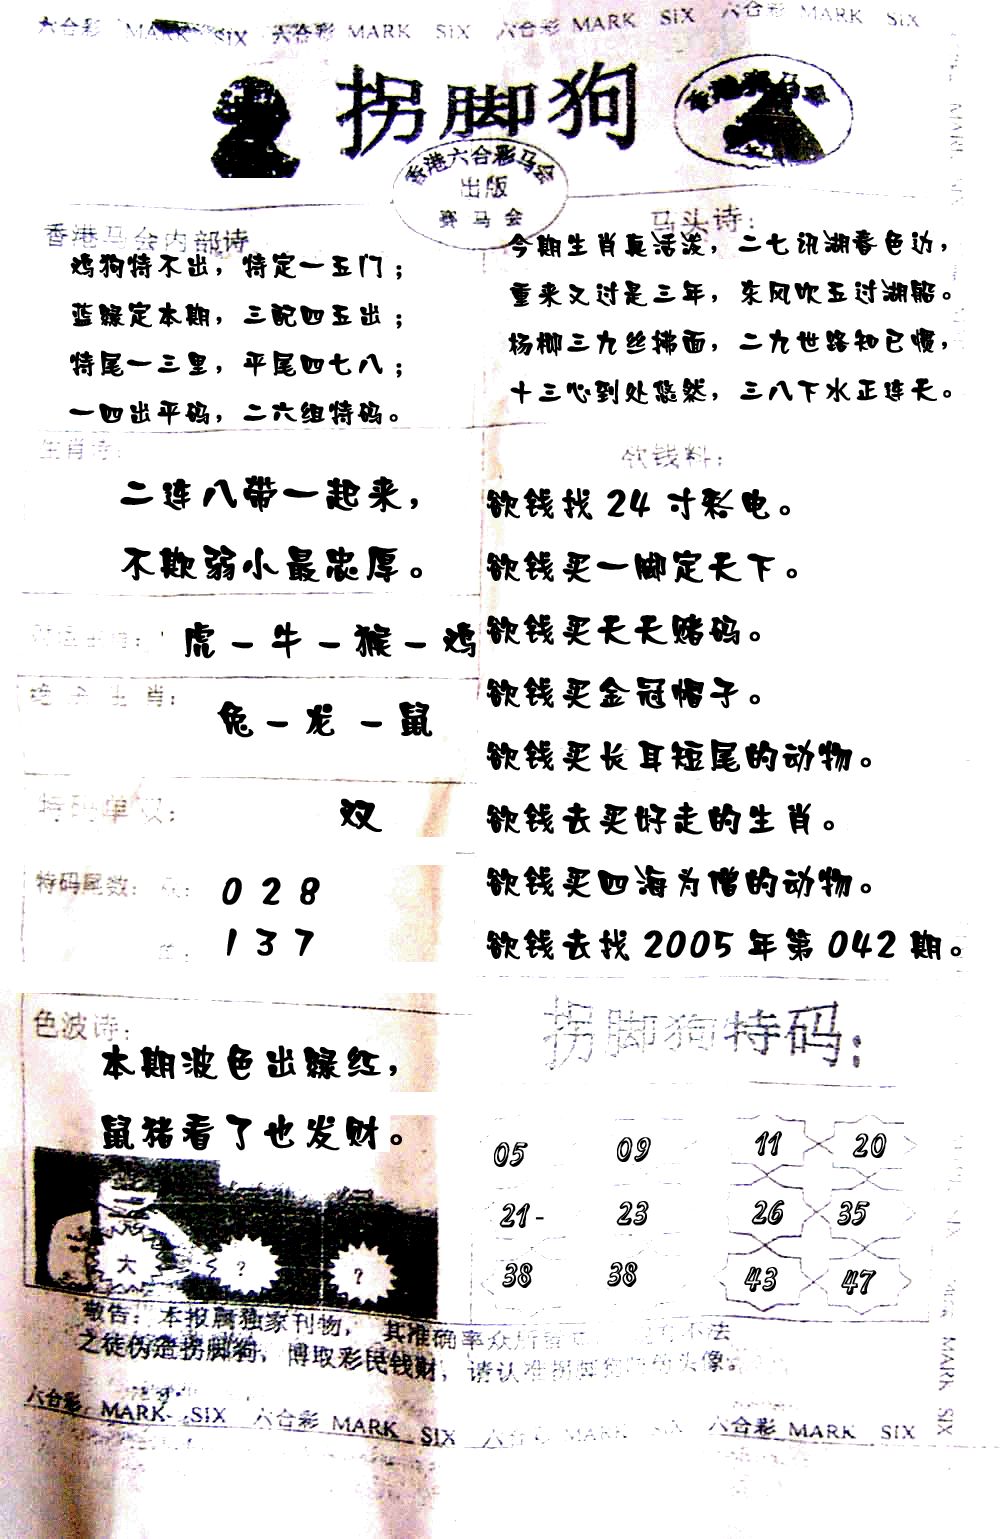 六合彩 MARK SIX 六合彩 MARK SIX 六合彩 MARK SIX 六合彩 MARK SIX
拐脚狗
香港六合彩马会
出版
赛马会
香港马会内部诗
鸡狗特不出，特定一五门；
蓝绿定本期，三配四五出；
特尾一三里，平尾四七八；
一四出平码，二六组特码。
马头诗：
今期生肖真活泼，二七讯湖春色边，
重来又过是三年，东风吹五过湖船。
杨柳三九丝拂面，二九世路知已惯，
十三心到处悠然，三八下水正连天。
生肖诗：
二连八带一起来，
不欺弱小最忠厚。
虎－牛－猴－鸡
绝杀生肖：
兔－龙－鼠
特码单双：
双
特码尾数：
0 2 8
1 3 7
欲钱料：
欲钱找 24 寸彩电。
欲钱买一脚定天下。
欲钱买天天赌码。
欲钱买金冠帽子。
欲钱买长耳短尾的动物。
欲钱去买好走的生肖。
欲钱买四海为僧的动物。
欲钱去找 2005 年第 042 期。
色波诗：
本期波色出绿红，
鼠猪看了也发财。
大 ? ?
拐脚狗特码：
05 09 11 20
21- 23 26 35
38 38 43 47
敬告：本报属独家刊物，其准确率众所皆 不法
之徒伪造拐脚狗，博取彩民钱财，请认准拐脚狗 头像
六合彩 MARK SIX 六合彩 MARK SIX 六合彩 MARK SIX 六合彩 MARK SIX
MARK SIX